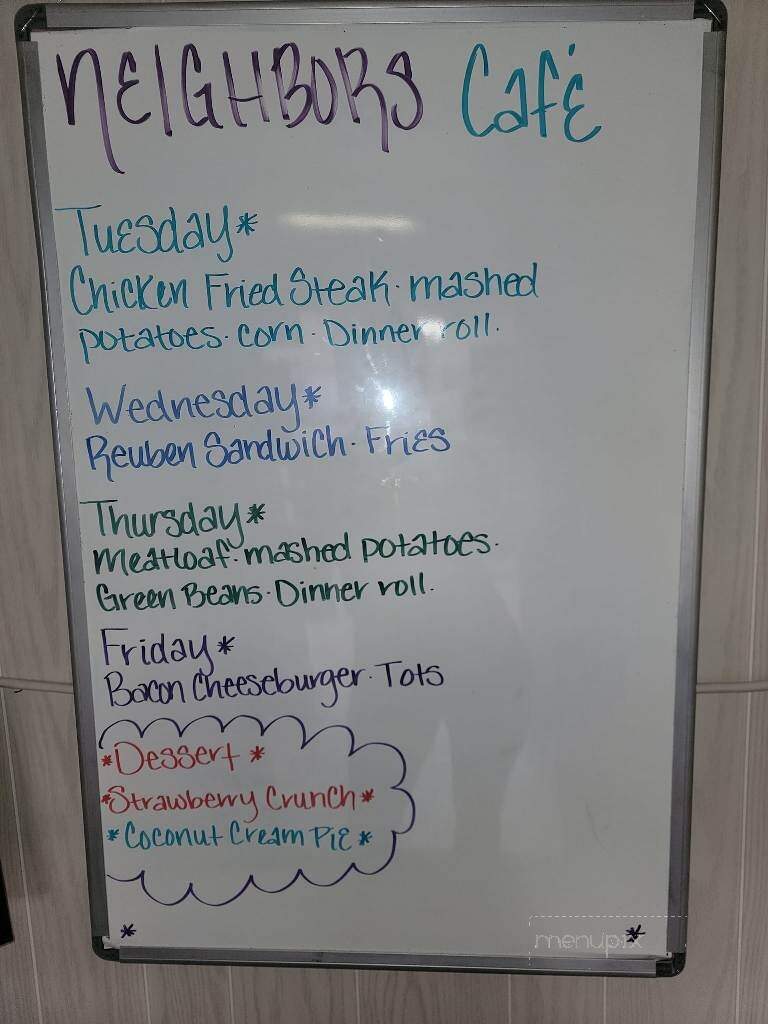 NEIGHBORS Café
Tuesday*
Chicken Fried Steak · mashed
potatoes · corn · Dinner roll.
Wednesday*
Reuben Sandwich · Fries
Thursday*
Meatloaf · mashed potatoes ·
Green Beans · Dinner roll.
Friday*
Bacon Cheeseburger · Tots
*Dessert*
*Strawberry Crunch*
*Coconut Cream Pie*
* *
menupix